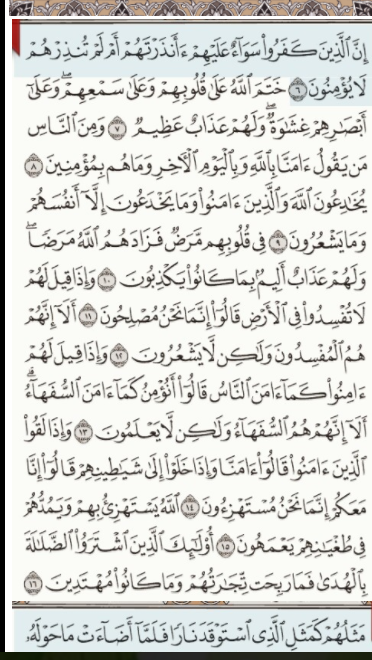 إِنَّ ٱلَّذِينَ كَفَرُواْ سَوَآءٌ عَلَيْهِمْ ءَأَنذَرْتَهُمْ أَمْ لَمْ تُنذِرْهُمْ
لَا يُؤْمِنُونَ ٦ خَتَمَ ٱللَّهُ عَلَىٰ قُلُوبِهِمْ وَعَلَىٰ سَمْعِهِمْۖ وَعَلَىٰٓ
أَبْصَٰرِهِمْ غِشَٰوَةٌۖ وَلَهُمْ عَذَابٌ عَظِيمٌ ٧ وَمِنَ ٱلنَّاسِ
مَن يَقُولُ ءَامَنَّا بِٱللَّهِ وَبِٱلْيَوْمِ ٱلْءَاخِرِ وَمَا هُم بِمُؤْمِنِينَ ٨
يُخَٰدِعُونَ ٱللَّهَ وَٱلَّذِينَ ءَامَنُواْ وَمَا يَخْدَعُونَ إِلَّآ أَنفُسَهُمْ
وَمَا يَشْعُرُونَ ٩ فِى قُلُوبِهِم مَّرَضٌ فَزَادَهُمُ ٱللَّهُ مَرَضًاۖ
وَلَهُمْ عَذَابٌ أَلِيمٌۢ بِمَا كَانُواْ يَكْذِبُونَ ١٠ وَإِذَا قِيلَ لَهُمْ
لَا تُفْسِدُواْ فِى ٱلْأَرْضِ قَالُوٓاْ إِنَّمَا نَحْنُ مُصْلِحُونَ ١١ أَلَآ إِنَّهُمْ
هُمُ ٱلْمُفْسِدُونَ وَلَٰكِن لَّا يَشْعُرُونَ ١٢ وَإِذَا قِيلَ لَهُمْ
ءَامِنُواْ كَمَآ ءَامَنَ ٱلنَّاسُ قَالُوٓاْ أَنُؤْمِنُ كَمَآ ءَامَنَ ٱلسُّفَهَآءُۗ
أَلَآ إِنَّهُمْ هُمُ ٱلسُّفَهَآءُ وَلَٰكِن لَّا يَعْلَمُونَ ١٣ وَإِذَا لَقُواْ
ٱلَّذِينَ ءَامَنُواْ قَالُوٓاْ ءَامَنَّا وَإِذَا خَلَوْاْ إِلَىٰ شَيَٰطِينِهِمْ قَالُوٓاْ إِنَّا
مَعَكُمْ إِنَّمَا نَحْنُ مُسْتَهْزِءُونَ ١٤ ٱللَّهُ يَسْتَهْزِئُ بِهِمْ وَيَمُدُّهُمْ
فِى طُغْيَٰنِهِمْ يَعْمَهُونَ ١٥ أُوْلَٰٓئِكَ ٱلَّذِينَ ٱشْتَرَوُاْ ٱلضَّلَٰلَةَ
بِٱلْهُدَىٰ فَمَا رَبِحَت تِّجَٰرَتُهُمْ وَمَا كَانُواْ مُهْتَدِينَ ١٦
مَثَلُهُمْ كَمَثَلِ ٱلَّذِى ٱسْتَوْقَدَ نَارًا فَلَمَّآ أَضَآءَتْ مَا حَوْلَهُۥ